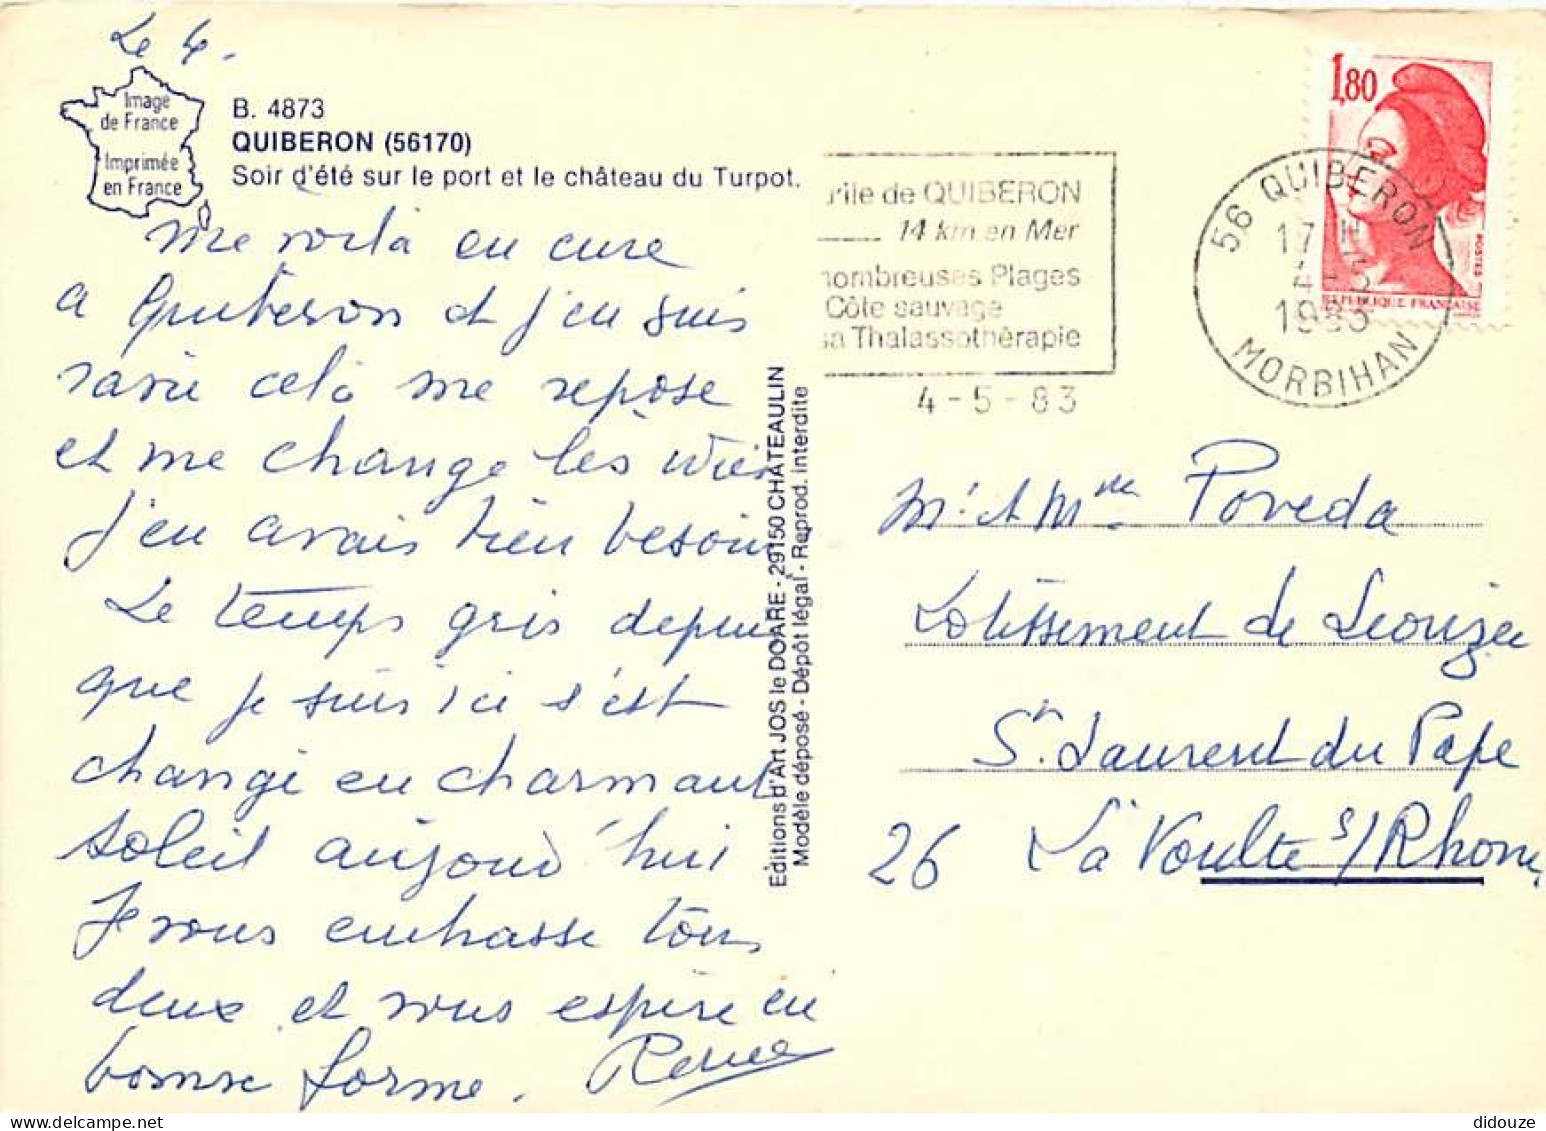 Le 4.
Image
de France
Imprimée
en France
B. 4873
QUIBERON (56170)
Soir d'été sur le port et le château du Turpot.
me voilà en cure
a Quiberon et j'en suis
ravie celà me repose
et me change les idées
j'en avais bien besoin
Le temps gris depuis
que je suis ici s'est
changé en charmant
soleil aujourd'hui
Je vous embrasse tous
deux et vous espère en
bonne forme. Renée
Editions d'Art JOS le DOARE - 29150 CHATEAULIN
Modèle déposé - Dépôt légal - Reprod. interdite
r'ile de QUIBERON
14 km en Mer
nombreuses Plages
Côte sauvage
sa Thalassothérapie
4-5-83
1,80
POSTES
REPUBLIQUE FRANÇAISE
56 QUIBERON
17 H
4-5
1983
MORBIHAN
Mr et Mme Poveda
Lotissement de Leouzee
St Laurent du Pape
26 La Voulte s/Rhone
didouze